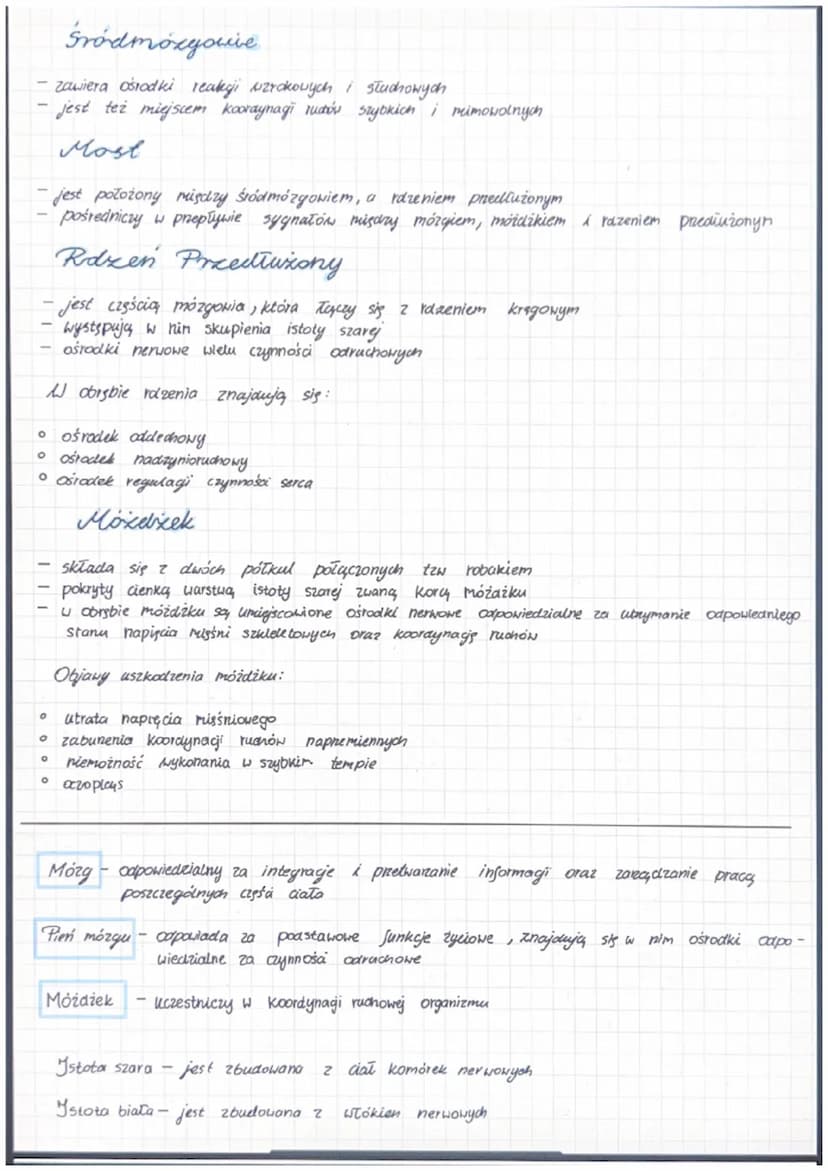 Śródmózgowie
- zawiera ośrodki reakcji wzrokowych i słuchowych
- jest też miejscem koordynacji ruchów szybkich i mimowolnych
Most
- jest położony między śródmózgowiem, a rdzeniem przedłużonym
- pośredniczy w przepływie sygnałów między mózgiem, móżdżkiem i rdzeniem przedłużonym
Rdzeń Przedłużony
- jest częścią mózgowia, która łączy się z rdzeniem kręgowym
- występują w nim skupienia istoty szarej
- ośrodki nerwowe wielu czynności odruchowych
W obrębie rdzenia znajdują się:
° ośrodek oddechowy
° ośrodek naczynioruchowy
° ośrodek regulacji czynności serca
Móżdżek
- składa się z dwóch półkul połączonych tzw robakiem
- pokryty cienką warstwą istoty szarej zwaną korą móżdżku
- w obrębie móżdżku są umiejscowione ośrodki nerwowe odpowiedzialne za utrzymanie odpowiedniego
stanu napięcia mięśni szkieletowych oraz koordynację ruchów
Objawy uszkodzenia móżdżku:
° utrata napięcia mięśniowego
° zaburzenia koordynacji ruchów naprzemiennych
° niemożność wykonania w szybkim tempie
° oczopląs
Mózg - odpowiedzialny za integracje i przetwarzanie informacji oraz zarządzanie pracą
poszczególnych części ciała
Pień mózgu - odpowiada za podstawowe funkcje życiowe, znajdują się w nim ośrodki odpo-
wiedzialne za czynności odruchowe
Móżdżek - uczestniczy w koordynacji ruchowej organizmu
Istota szara - jest zbudowana z ciał komórek nerwowych
Istota biała - jest zbudowana z włókien nerwowych